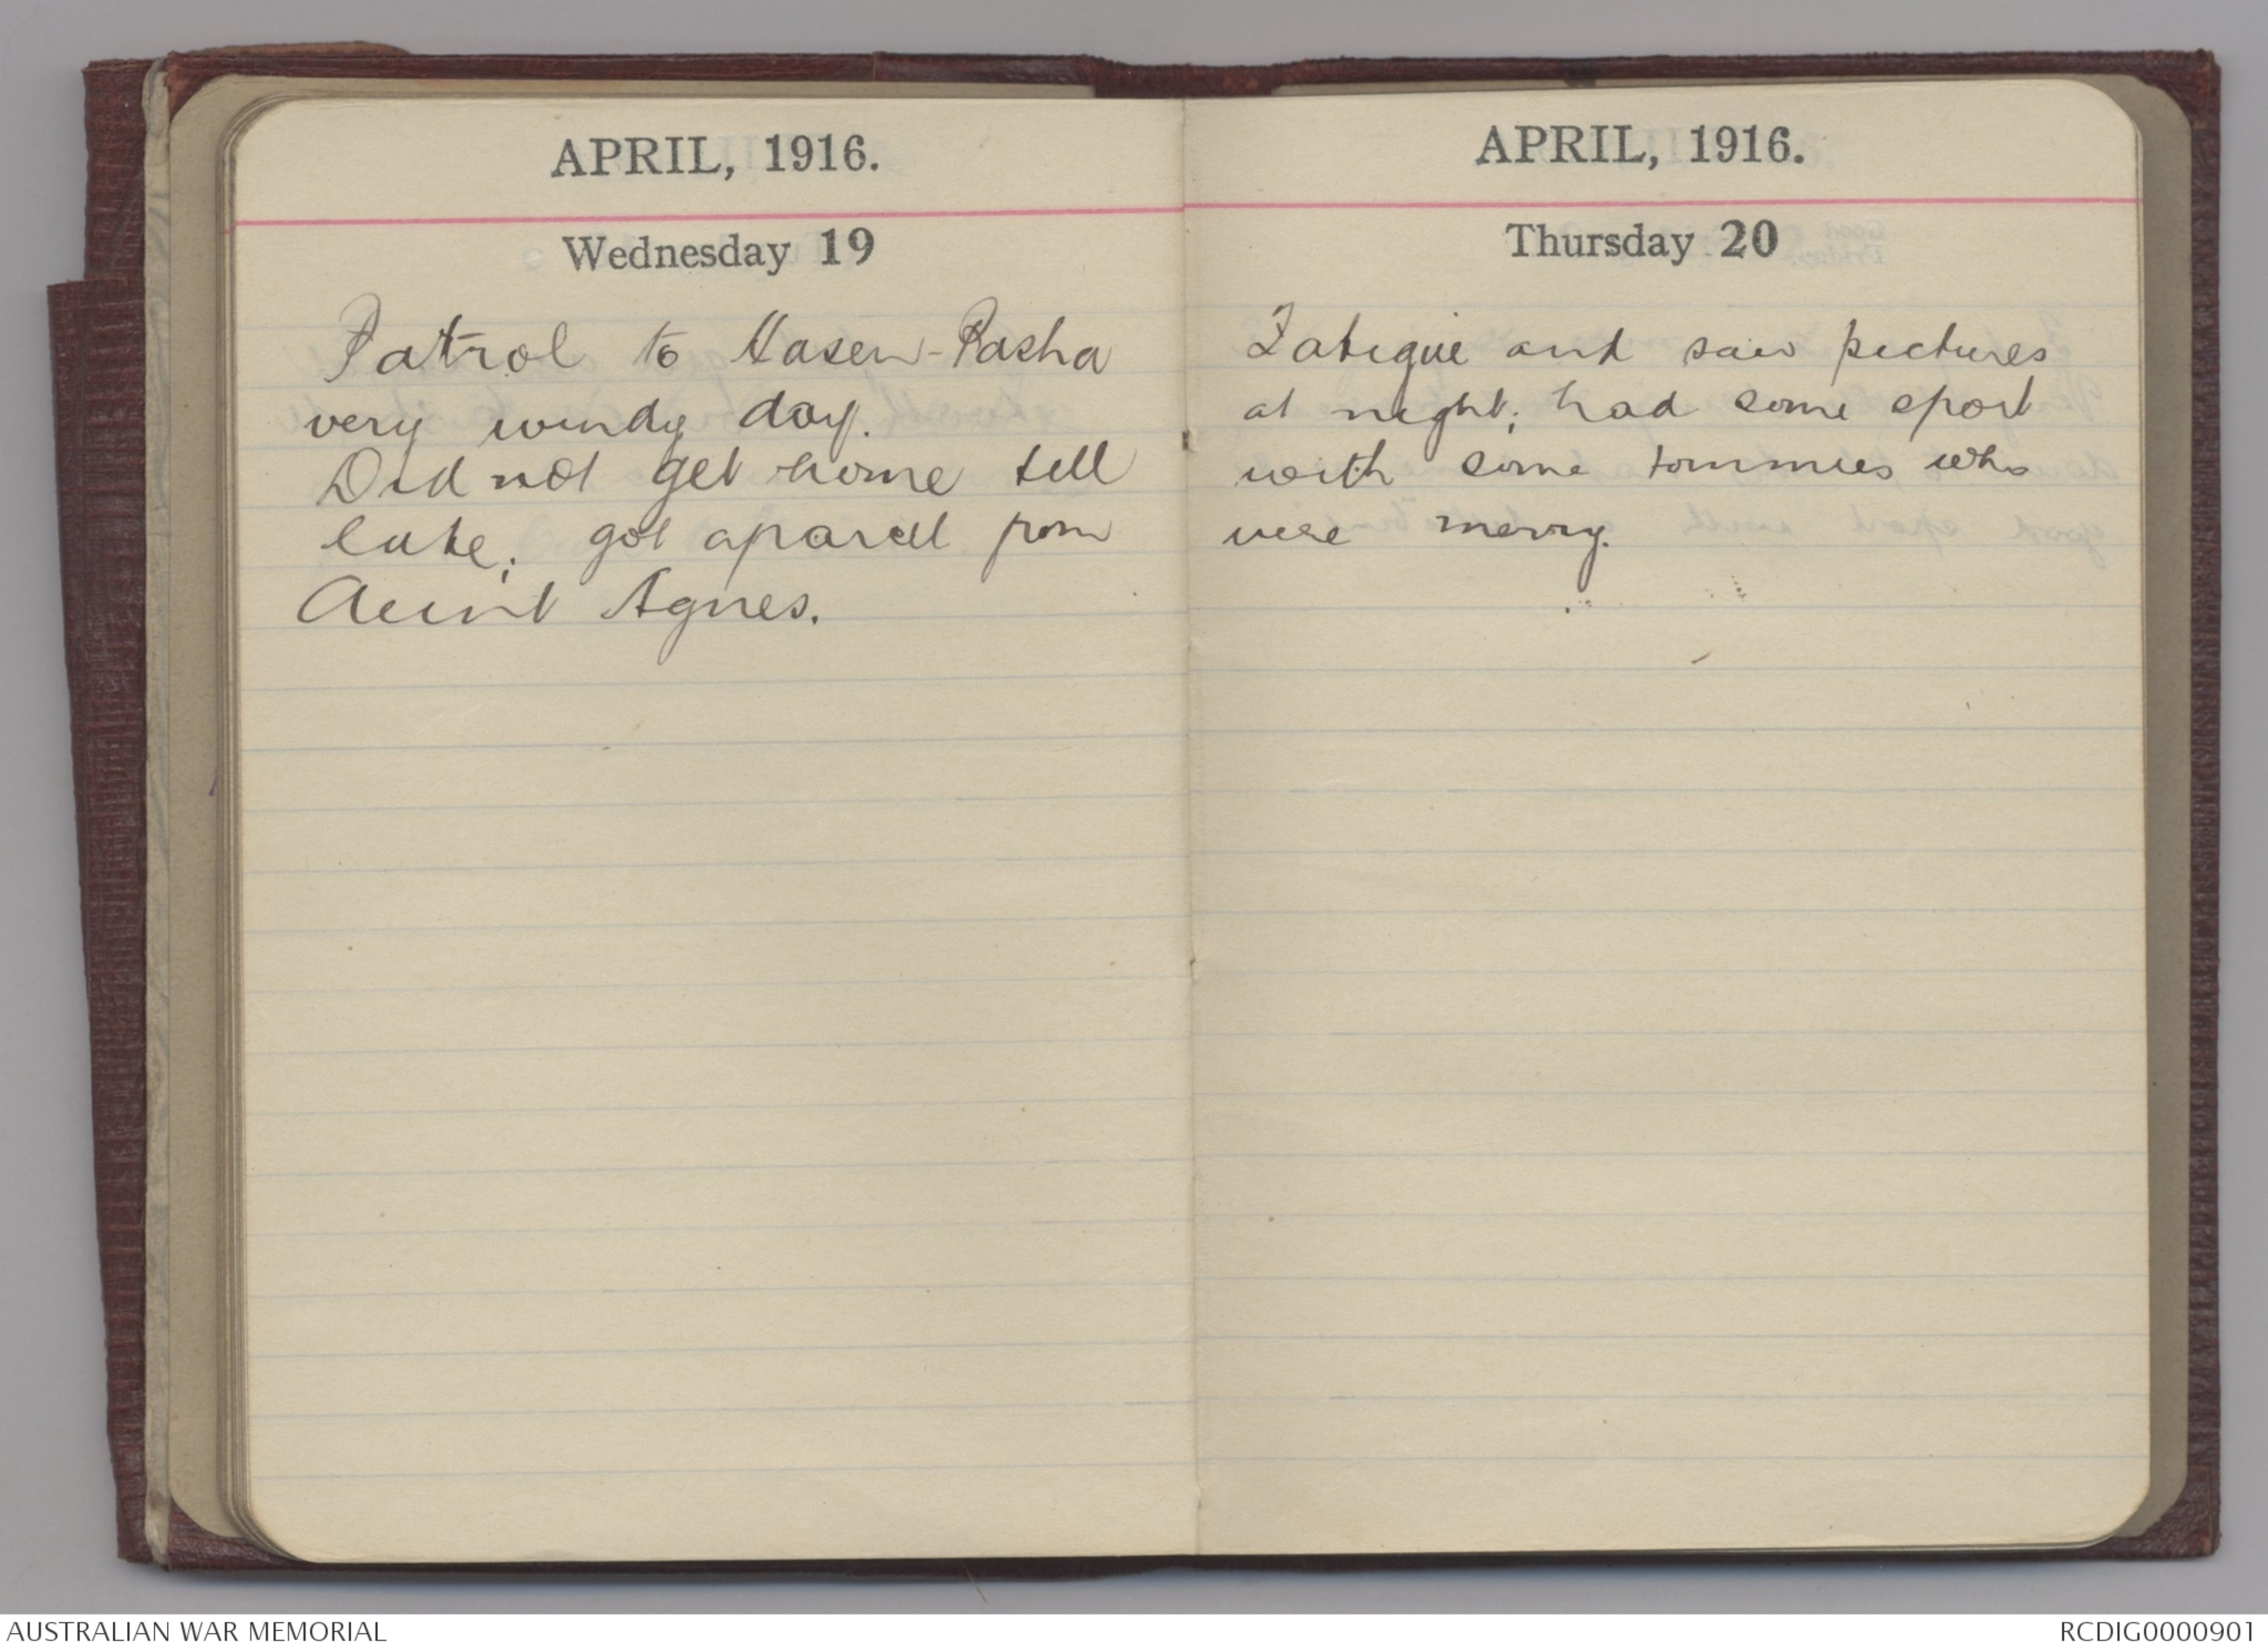 APRIL, 1916.
Wednesday 19
Patrol to Hasen-Pasha
very windy day.
Did not get home till
late; got aparcel from
Aunt Agnes.
APRIL, 1916.
Thursday 20
Fatigue and saw pictures
at night; had some sport
with some tommies who
were merry.
AUSTRALIAN WAR MEMORIAL
RCDIG0000901